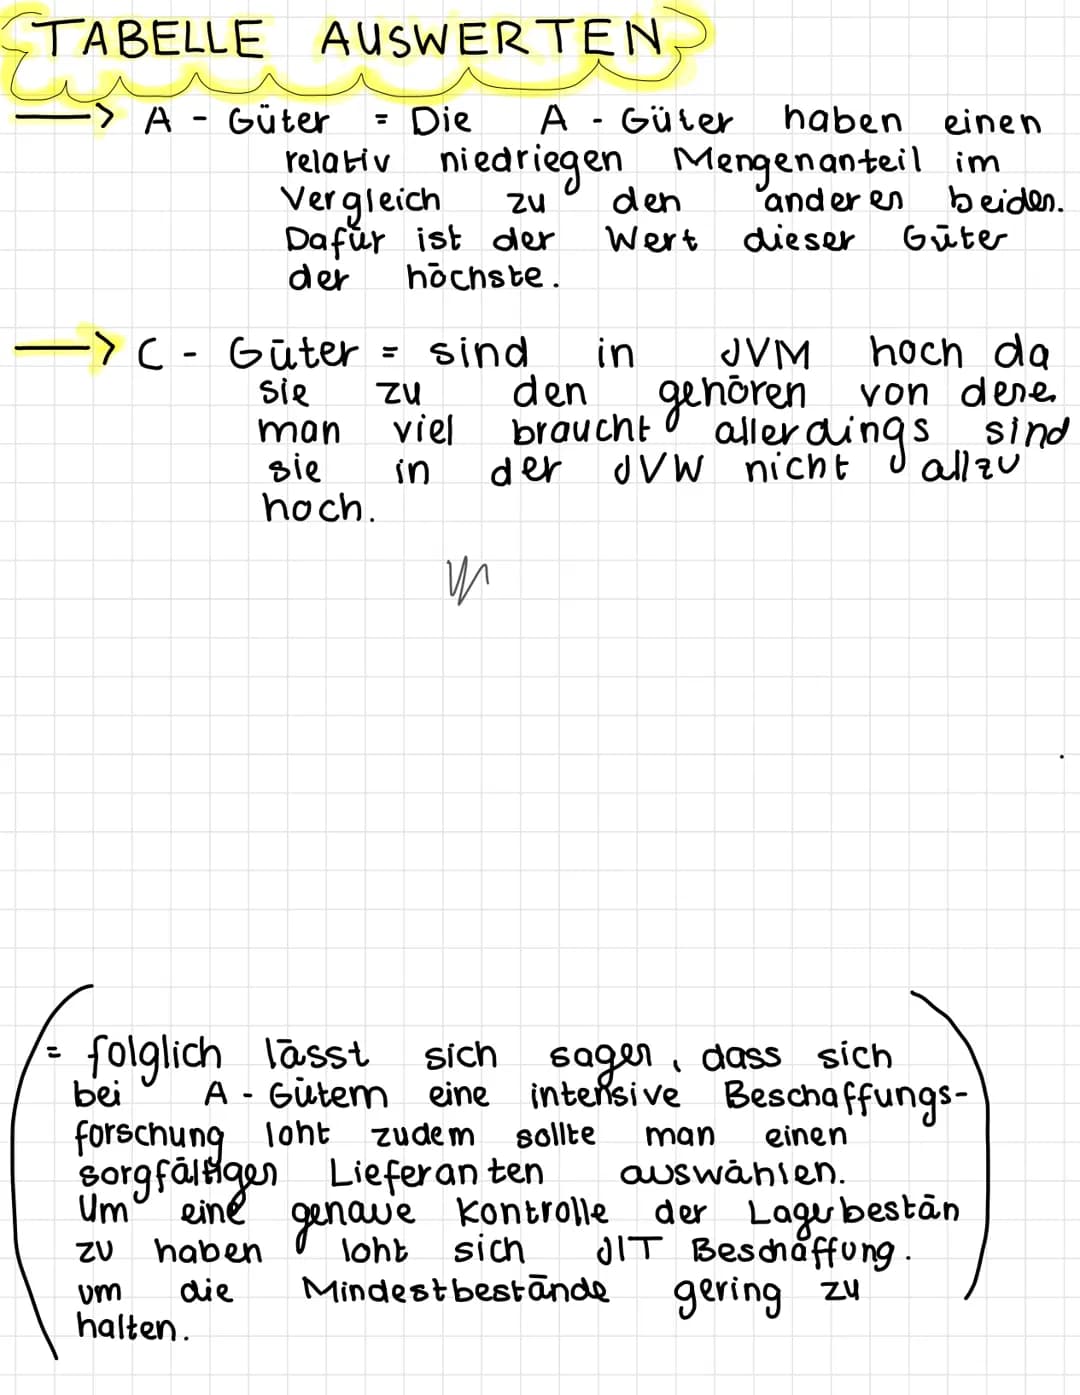 TABELLE AUSWERTEN
→ A - Güter = Die A - Güter haben einen
relativ niedriegen Mengenanteil im
Vergleich zu den anderen beiden.
Dafür ist der Wert dieser Güter
der höchste.
→ C - Güter = sind in JVM hoch da
sie zu den gehören von dene
man viel braucht allerdings sind
sie in der JVW nicht allzu
hoch.
= folglich lässt sich sagen, dass sich
bei A - Gütern eine intensive Beschaffungs-
forschung loht zudem sollte man einen
sorgfältigen Lieferanten auswählen.
Um eine genaue Kontrolle der Lagerbestän
zu haben loht sich JIT Beschaffung.
um die Mindestbestände gering zu
halten.